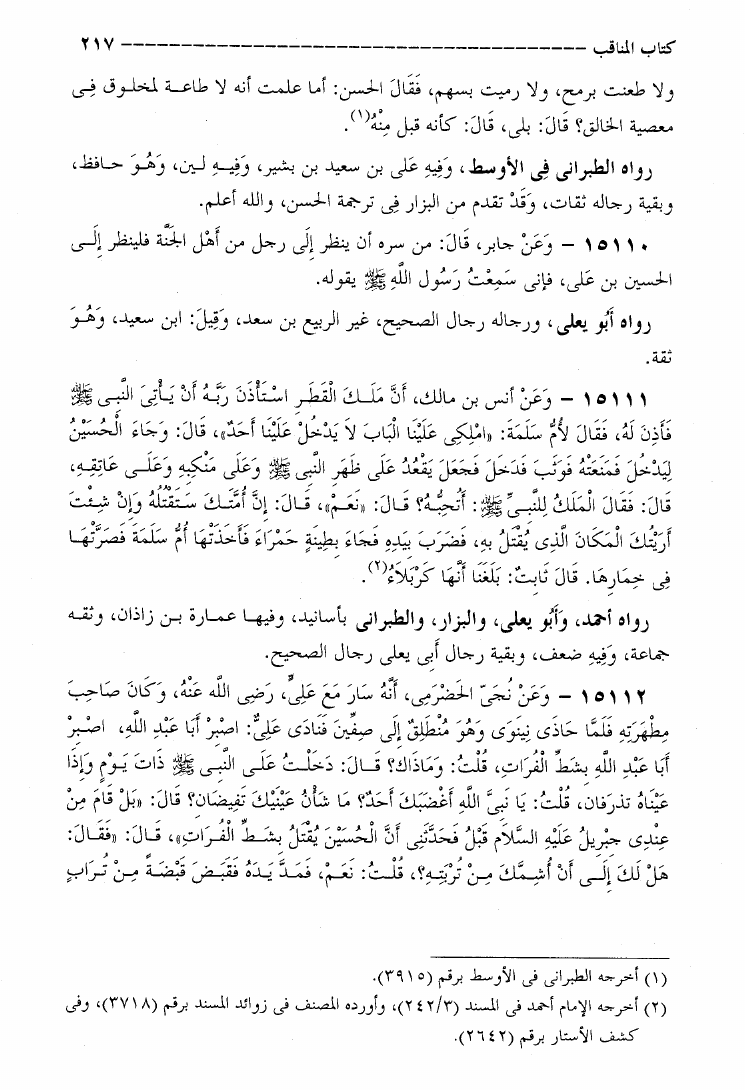 كتاب المناقب ــــــــــــــــــــــــــــــــــــــــ ٢١٧
ولا طعنت برمح، ولا رميت بسهم، فَقَالَ الحسن: أما علمت أنه لا طاعة لمخلوق فِى
معصية الخالق؟ قَالَ: بلى، قَالَ: كأنه قبل مِنْهُ(١).
رواه الطبرانى فِى الأوسط، وَفِيهِ عَلى بن سعيد بن بشير، وَفِيهِ لين، وَهُوَ حافظ،
وبقية رجاله ثقات، وَقَدْ تقدم من البزار فِى ترجمة الحسن، والله أعلم.
١٥١١٠ – وَعَنْ جابر، قَالَ: من سره أن ينظر إِلَى رجل من أَهْل الجَنَّة فلينظر إِلَى
الحسين بن عَلى، فإنى سَمِعْتُ رَسُول اللَّهِ ﷺ يقوله.
رواه أَبُو يعلى، ورجاله رجال الصحيح، غير الربيع بن سعد، وَقِيلَ: ابن سعيد، وَهُوَ
ثقة.
١٥١١١ – وَعَنْ أنس بن مالك، أَنَّ مَلَكَ الْقَطَرِ اسْتَأْذَنَ رَبَّهُ أَنْ يَأْتِىَ النَّبِى ﷺ
فَأَذِنَ لَهُ، فَقَالَ لأُمِّ سَلَمَةَ: «امْلِكِى عَلَيْنَا الْبَابَ لاَ يَدْخُلْ عَلَيْنَا أَحَدٌ»، قَالَ: وَجَاءَ الْحُسَيْنُ
لِيَدْخُلَ فَمَنَعَتْهُ فَوَثَبَ فَدَخَلَ فَجَعَلَ يَقْعُدُ عَلَى ظَهَرِ النَّبِى ﷺ وَعَلَى مَنْكِبِهِ وَعَلَى عَاتِقِهِ،
قَالَ: فَقَالَ الْمَلَكُ لِلنَّبِىِّ ﷺ: أَتُحِبُّهُ؟ قَالَ: «نَعَمْ»، قَالَ: إِنَّ أُمَّتَكَ سَتَقْتُلُهُ وَإِنْ شِئْتَ
أَرَيْتُكَ الْمَكَانَ الَّذِى يُقْتَلُ بِهِ، فَضَرَبَ بِيَدِهِ فَجَاءَ بِطِينَةٍ حَمْرَاءَ فَأَخَذَتْهَا أُمُّ سَلَمَةَ فَصَرَّتْهَا
فِى خِمَارِهَا. قَالَ ثَابِتٌ: بَلَغَنَا أَنَّهَا كَرْبَلاَءُ(٢).
رواه أحمد، وَأَبُو يعلى، والبزار، والطبرانى بأسانيد، وفيها عمارة بن زاذان، وثقه
جماعة، وَفِيهِ ضعف، وبقية رجال أَبِى يعلى رجال الصحيح.
١٥١١٢ – وَعَنْ نُجَىّ الحَضْرَمِى، أَنَّهُ سَارَ مَعَ عَلِىٍّ، رَضِى اللَّه عَنْهُ، وَكَانَ صَاحِبَ
مِطْهَرَتِهِ فَلَمَّا حَاذَى نِينَوَى وَهُوَ مُنْطَلِقٌ إِلَى صِفِّينَ فَنَادَى عَلِىٌّ: اصْبِرْ أَبَا عَبْدِ اللَّهِ، اصْبِرْ
أَبَا عَبْدِ اللَّهِ بِشَطِّ الْفُرَاتِ، قُلْتُ: وَمَاذَاكَ؟ قَالَ: دَخَلْتُ عَلَى النَّبِى ﷺ ذَاتَ يَوْمٍ وَإِذَا
عَيْنَاهُ تذرفان، قُلْتُ: يَا نَبِىَّ اللَّهِ أَغْضَبَكَ أَحَدٌ؟ مَا شَأْنُ عَيْنَيْكَ تَفِيضَانِ؟ قَالَ: «بَلْ قَامَ مِنْ
عِنْدِى جِبْرِيلُ عَلَيْهِ السَّلاَم قَبْلُ فَحَدَّثَنِى أَنَّ الْحُسَيْنَ يُقْتَلُ بِشَطِّ الْفُرَاتِ»، قَالَ: «فَقَالَ:
هَلْ لَكَ إِلَى أَنْ أُشِمَّكَ مِنْ تُرْبَتِهِ؟، قُلْتُ: نَعَمْ، فَمَدَّ يَدَهُ فَقَبَضَ قَبْضَةً مِنْ تُرَابٍ
(١) أخرجه الطبرانى فى الأوسط برقم (٣٩١٥).
(٢) أخرجه الإمام أحمد فى المسند (٢٤٢/٣)، وأورده المصنف فى زوائد المسند برقم (٣٧١٨)، وفى
كشف الأستار برقم (٢٦٤٢).